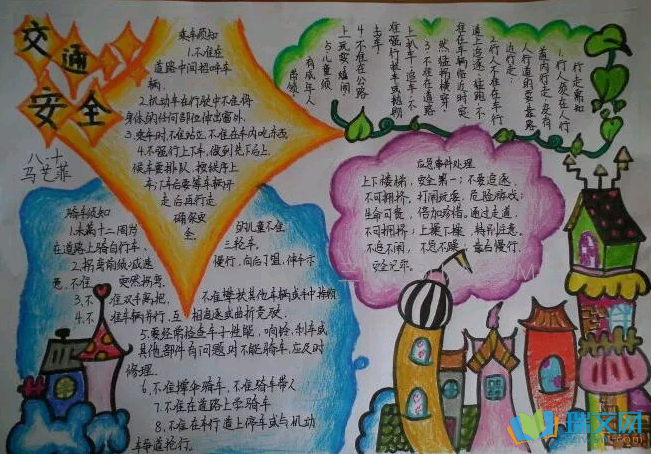 交通
安全
八.十
马艺菲
乘车须知
1.不准在
道路中间招呼车
辆.
2.机动车在行驶中不准将
身体的任何部位伸出窗外.
3.乘车时,不准站立,不准在车内吃东西
4.不强行上下车,做到先下后上,
候车要排队,按秩序上
车;下车后要等车辆开
走后再行走
确保安
全.
行走需知
1.行人须在人行
道内行走,没有
人行道的要靠路
边行走.
2.行人不准在车行
道上追逐、猛跑,不
准在车辆临近时突
然猛拐横穿.
3.不准在道路
上扒车、追车,不
准强行拦车或抛物
击车.
4.不准在公路
上玩耍嬉闹
5.儿童须
有成年人
带领.
应急事件处理
上下楼梯,安全第一;不要追逐,
不可拥挤;打闹玩耍,危险游戏;
生命可贵,倍加珍惜.通过走道,
不可拥挤;上操下操,特别注意.
不追不闹,
安全记牢.
骑车须知
1.未满十二周岁
的儿童不准
在道路上骑自行车、
三轮车.
2.拐弯前须减速
慢行,向后了望,伸手示
意,不准
突然拐弯.
3.不准双手离把,
不准攀扶其他车辆或手中持物
4.不准车辆并行,互相追逐或曲折竞驶.
5.要经常检查车子性能,响铃,刹车或
其他部件有问题时不能骑车,应及时
修理.
6.不准撑伞骑车,不准骑车带人
7.不准在道路上学骑车
8.不准在车行道上停车或与机动
车争道抢行.
瑞文网